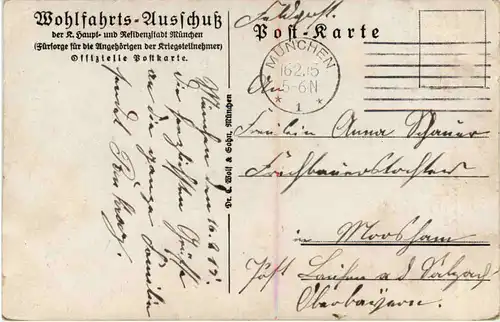 Wohlfahrts-Ausschuß
der K. Haupt- und Residenzstadt München
(Fürsorge für die Angehörigen der Kriegsteilnehmer)
Offizielle Postkarte.
Feldpost.
Post-Karte
MÜNCHEN
16.2.15
5-6 N
* 1 *
An
Fräulein Anna Schauer
in Moosham
Post Laufen a d Salzach
Oberbayern.
Dr. C. Wolf & Sohn, München
München den 16.2.15.
Die herzlichsten Grüße
an die ganze Familie
sendet